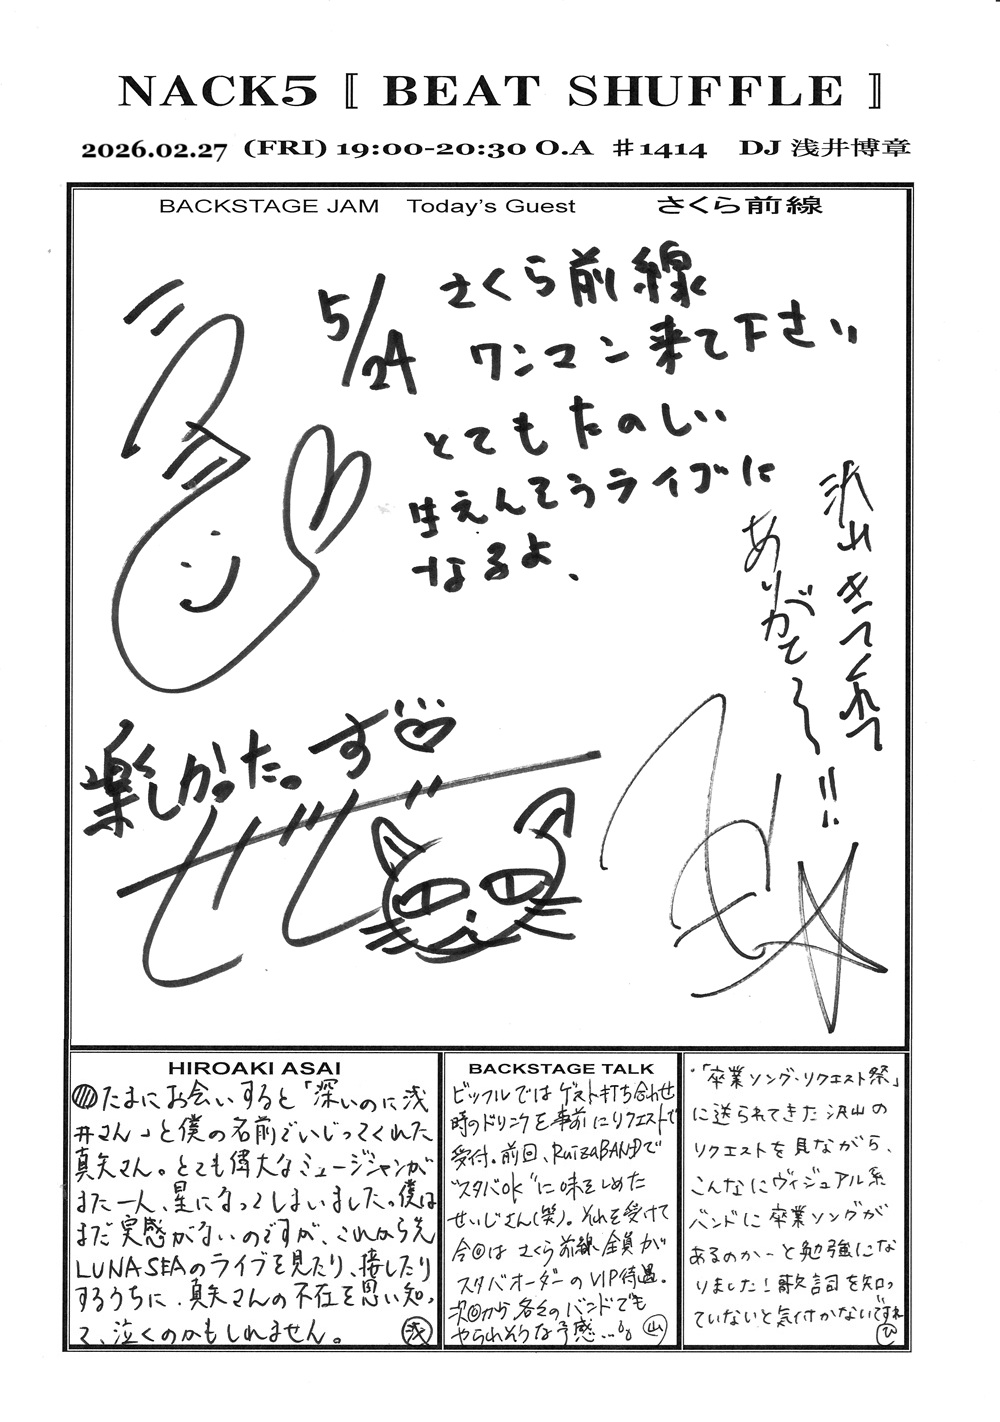 NACK5『 BEAT SHUFFLE 』
2026.02.27 (FRI) 19:00-20:30 O.A ♯1414 DJ 浅井博章
BACKSTAGE JAM Today's Guest さくら前線
5/24 さくら前線
ワンマン来て下さい
とてもたのしい
生えんそうライブに
なるよ、
沢山きてくれて
ありがて〜!!
楽しかった。す♡
ぜじ
HIROAKI ASAI
たまにお会いすると「深いのに浅
井さん」と僕の名前でいじってくれた
真矢さん。とても偉大なミュージシャンが
また一人、星になってしまいました。僕は
まだ実感がないのですが、これから先
LUNA SEAのライブを見たり、接したり
するうちに、真矢さんの不在を思い知っ
て、泣くのかもしれません。 浅
BACKSTAGE TALK
ビッフルではゲスト打ち合わせ
時のドリンクを事前にリクエストで
受付。前回、RuizaBANDで
"スタバok"に味をしめた
せいじさん(笑)。それを受けて
今回はさくら前線全員が
スタバオーダーのVIP待遇。
次回から各々のバンドでも
やられそうな予感… 山
・「卒業ソング・リクエスト祭」
に送られてきた沢山の
リクエストを見ながら、
こんなにヴィジュアル系
バンドに卒業ソングが
あるのかーと勉強にな
りました!歌詞を知っ
ていないと気付かないですね
ひ